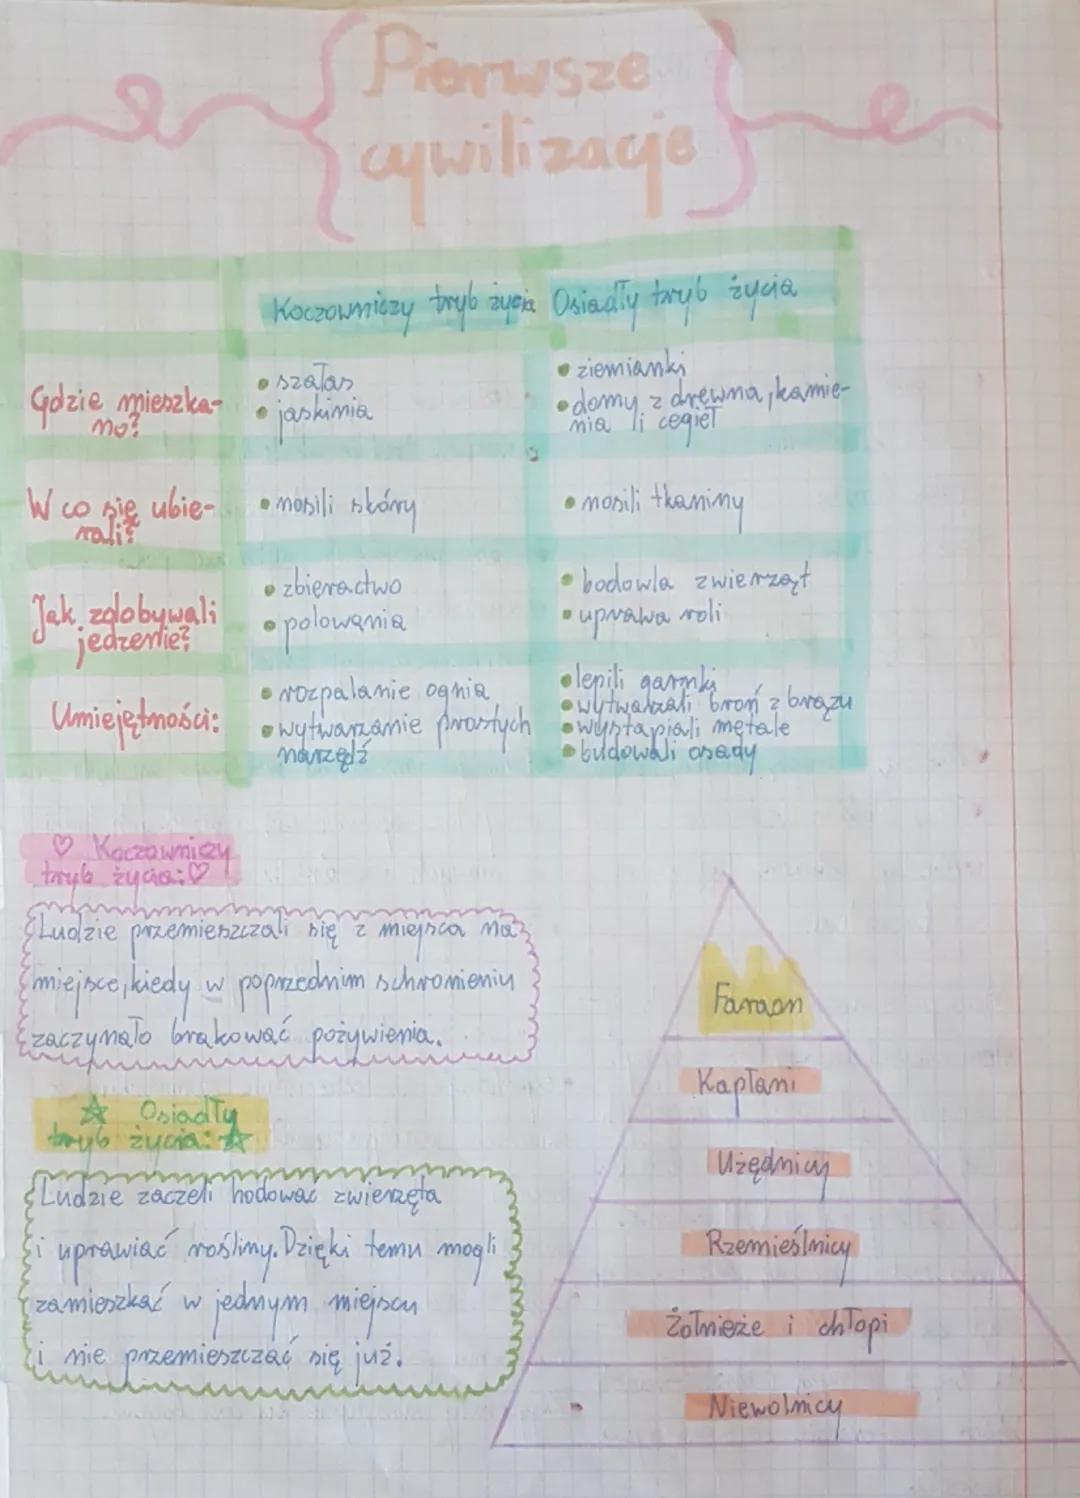 Pierwsze
cywilizacje
Koczowniczy tryb życia Osiadły tryb życia
Gdzie mieszka-
no?
• szałas
• jaskinia
• ziemianki
• domy z drewna, kamie-
nia i cegieł
W co się ubie-
rali?
• nosili skóry
• nosili tkaniny
Jak zdobywali
jedzenie?
• zbieractwo
• polowania
• hodowla zwierząt
• uprawa roli
Umiejętności:
• rozpalanie ognia
• wytwarzanie prostych
narzędź
• lepili garnki
• wytwarzali broń z brązu
• wystapiali metale
• budowali osady
♡ Koczowniczy
tryb życia:♡
Ludzie przemieszczali się z miejsca na
miejsce, kiedy w poprzednim schronieniu
zaczynało brakować pożywienia.
☆ Osiadły
tryb życia:☆
Ludzie zaczeli hodować zwierzęta
i uprawiać rośliny. Dzięki temu mogli
zamieszkać w jednym miejscu
i nie przemieszczać się już.
Faraon
Kapłani
Użędnicy
Rzemieślnicy
Żołnieże i chłopi
Niewolnicy